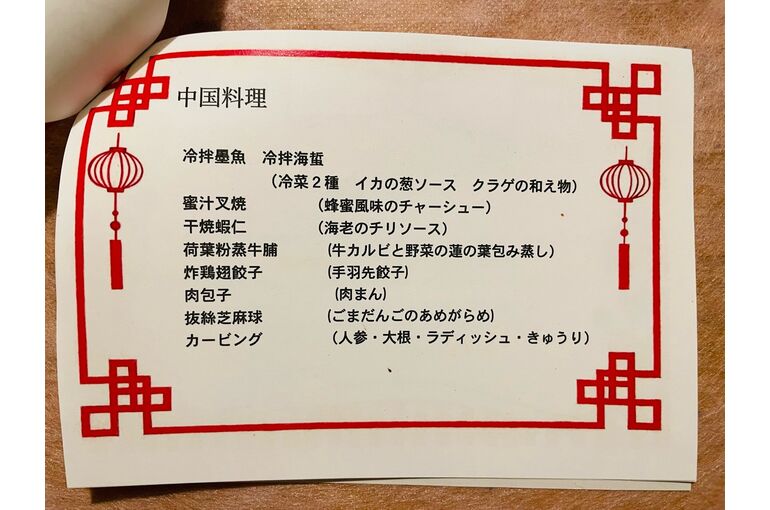 中国料理
冷拌墨魚　冷拌海蜇
（冷菜２種　イカの葱ソース　クラゲの和え物）
蜜汁叉焼　（蜂蜜風味のチャーシュー）
干焼蝦仁　（海老のチリソース）
荷葉粉蒸牛腩　(牛カルビと野菜の蓮の葉包み蒸し）
炸鶏翅餃子　(手羽先餃子)
肉包子　(肉まん)
抜絲芝麻球　(ごまだんごのあめがらめ)
カービング　（人参・大根・ラディッシュ・きゅうり）